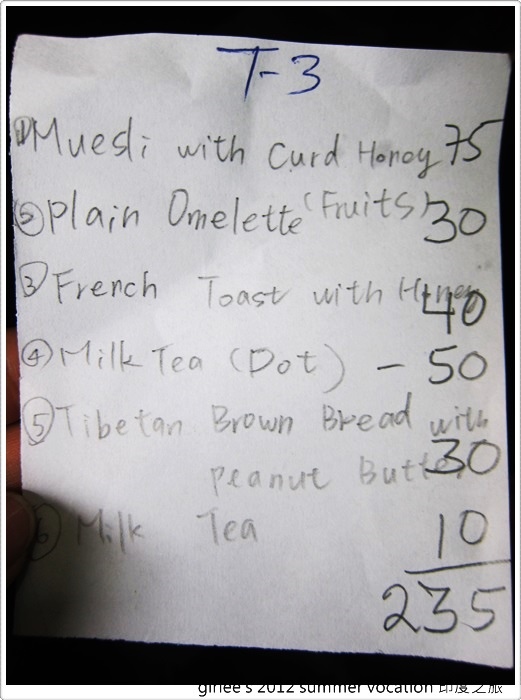 T-3
① Muesli with Curd Honey 75
② Plain Omelette (Fruits) 30
③ French Toast with Honey 40
④ Milk Tea (Pot) - 50
⑤ Tibetan Brown Bread with
Peanut Butter 30
⑥ Milk Tea 10
235
girlee's 2012 summer vocation 印度之旅